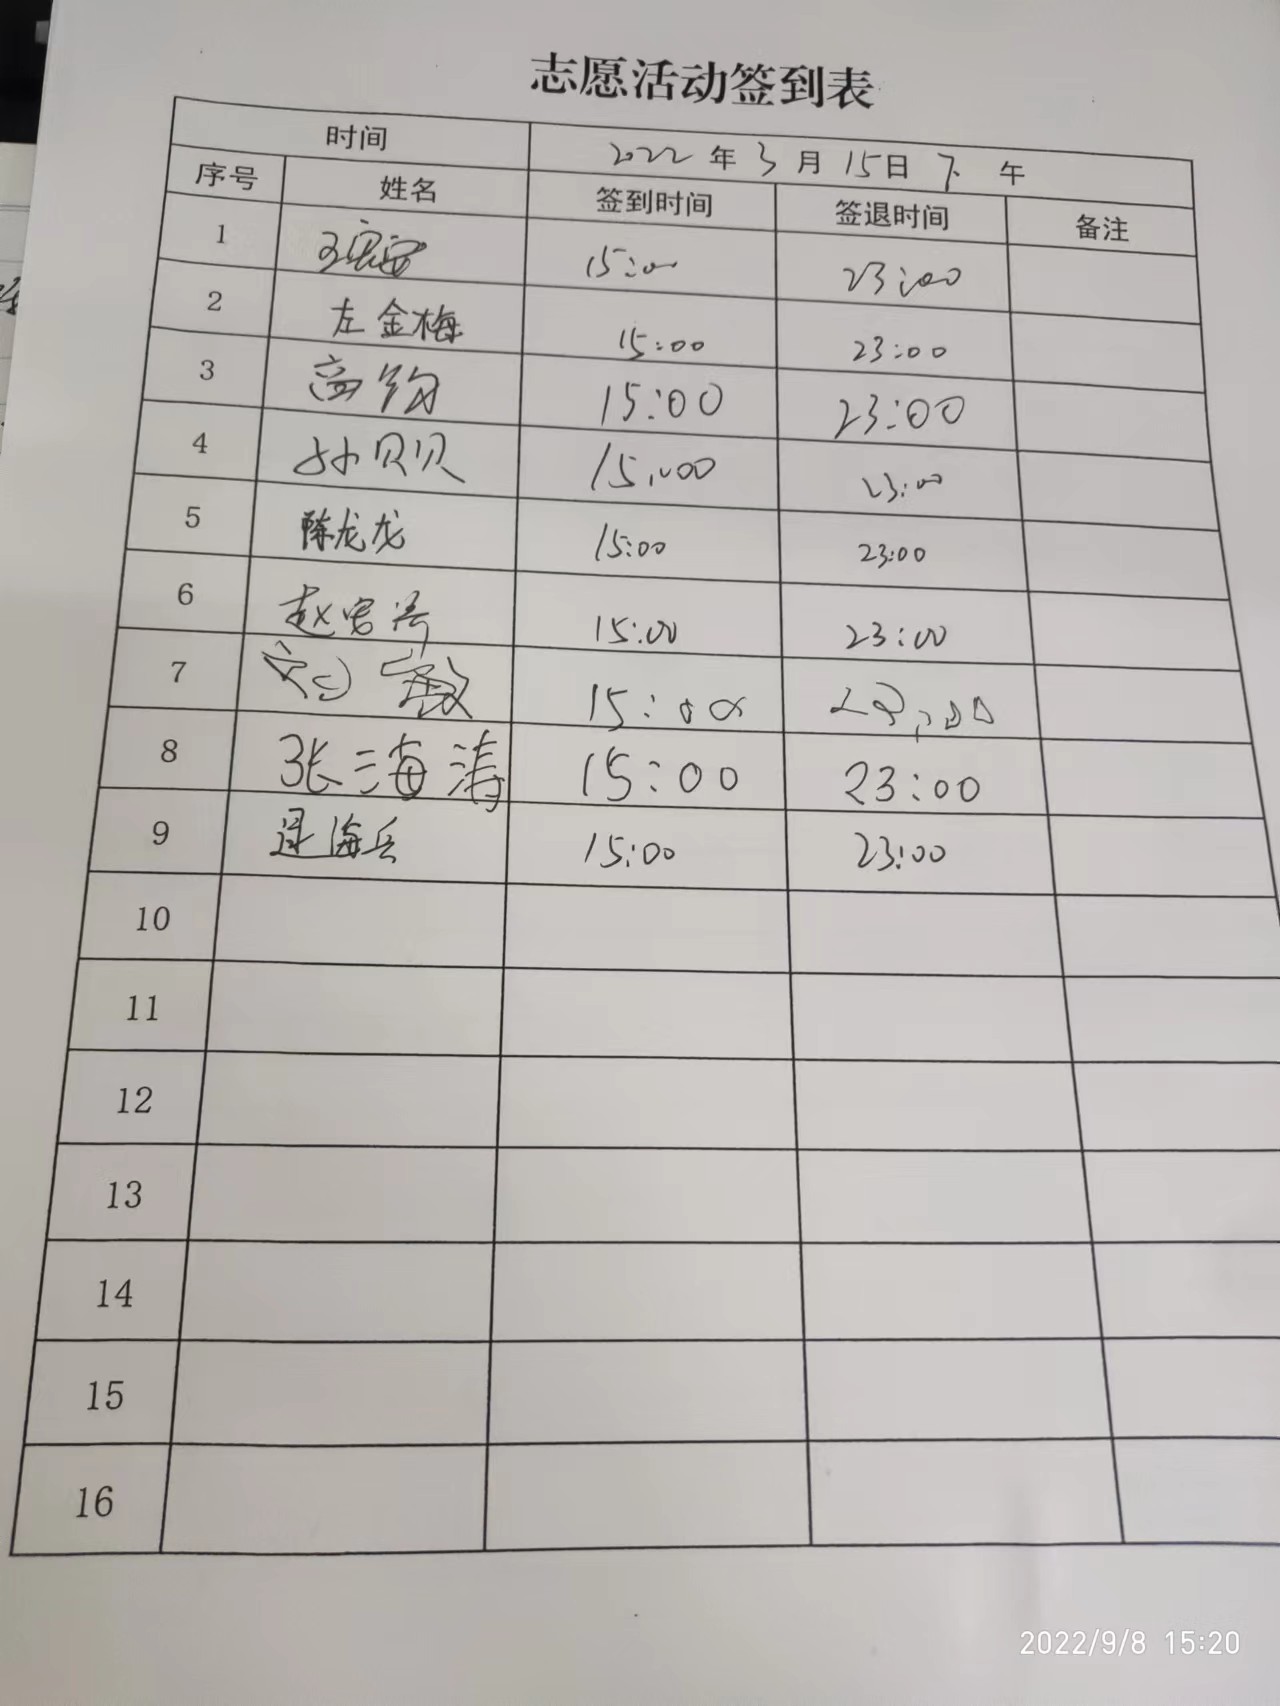 志愿活动签到表
时间 2022年3月15日下午
序号 姓名 签到时间 签退时间 备注
1 15:00 23:00
2 左金梅 15:00 23:00
3 高 15:00 23:00
4 孙贝贝 15:00 23:00
5 陈龙龙 15:00 23:00
6 赵 15:00 23:00
7 15:00 23:00
8 张海涛 15:00 23:00
9 海兵 15:00 23:00
10
11
12
13
14
15
16
2022/9/8 15:20